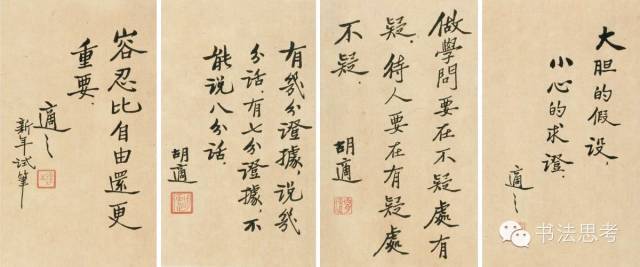 容忍比自由還更
重要.
適之
新年試筆
有幾分證據,說幾
分話.有七分證據,不
能說八分話.
胡適
做學問要在不疑處有
疑,待人要在有疑處
不疑.
胡適
大胆的假設,
小心的求證.
適之
书法思考